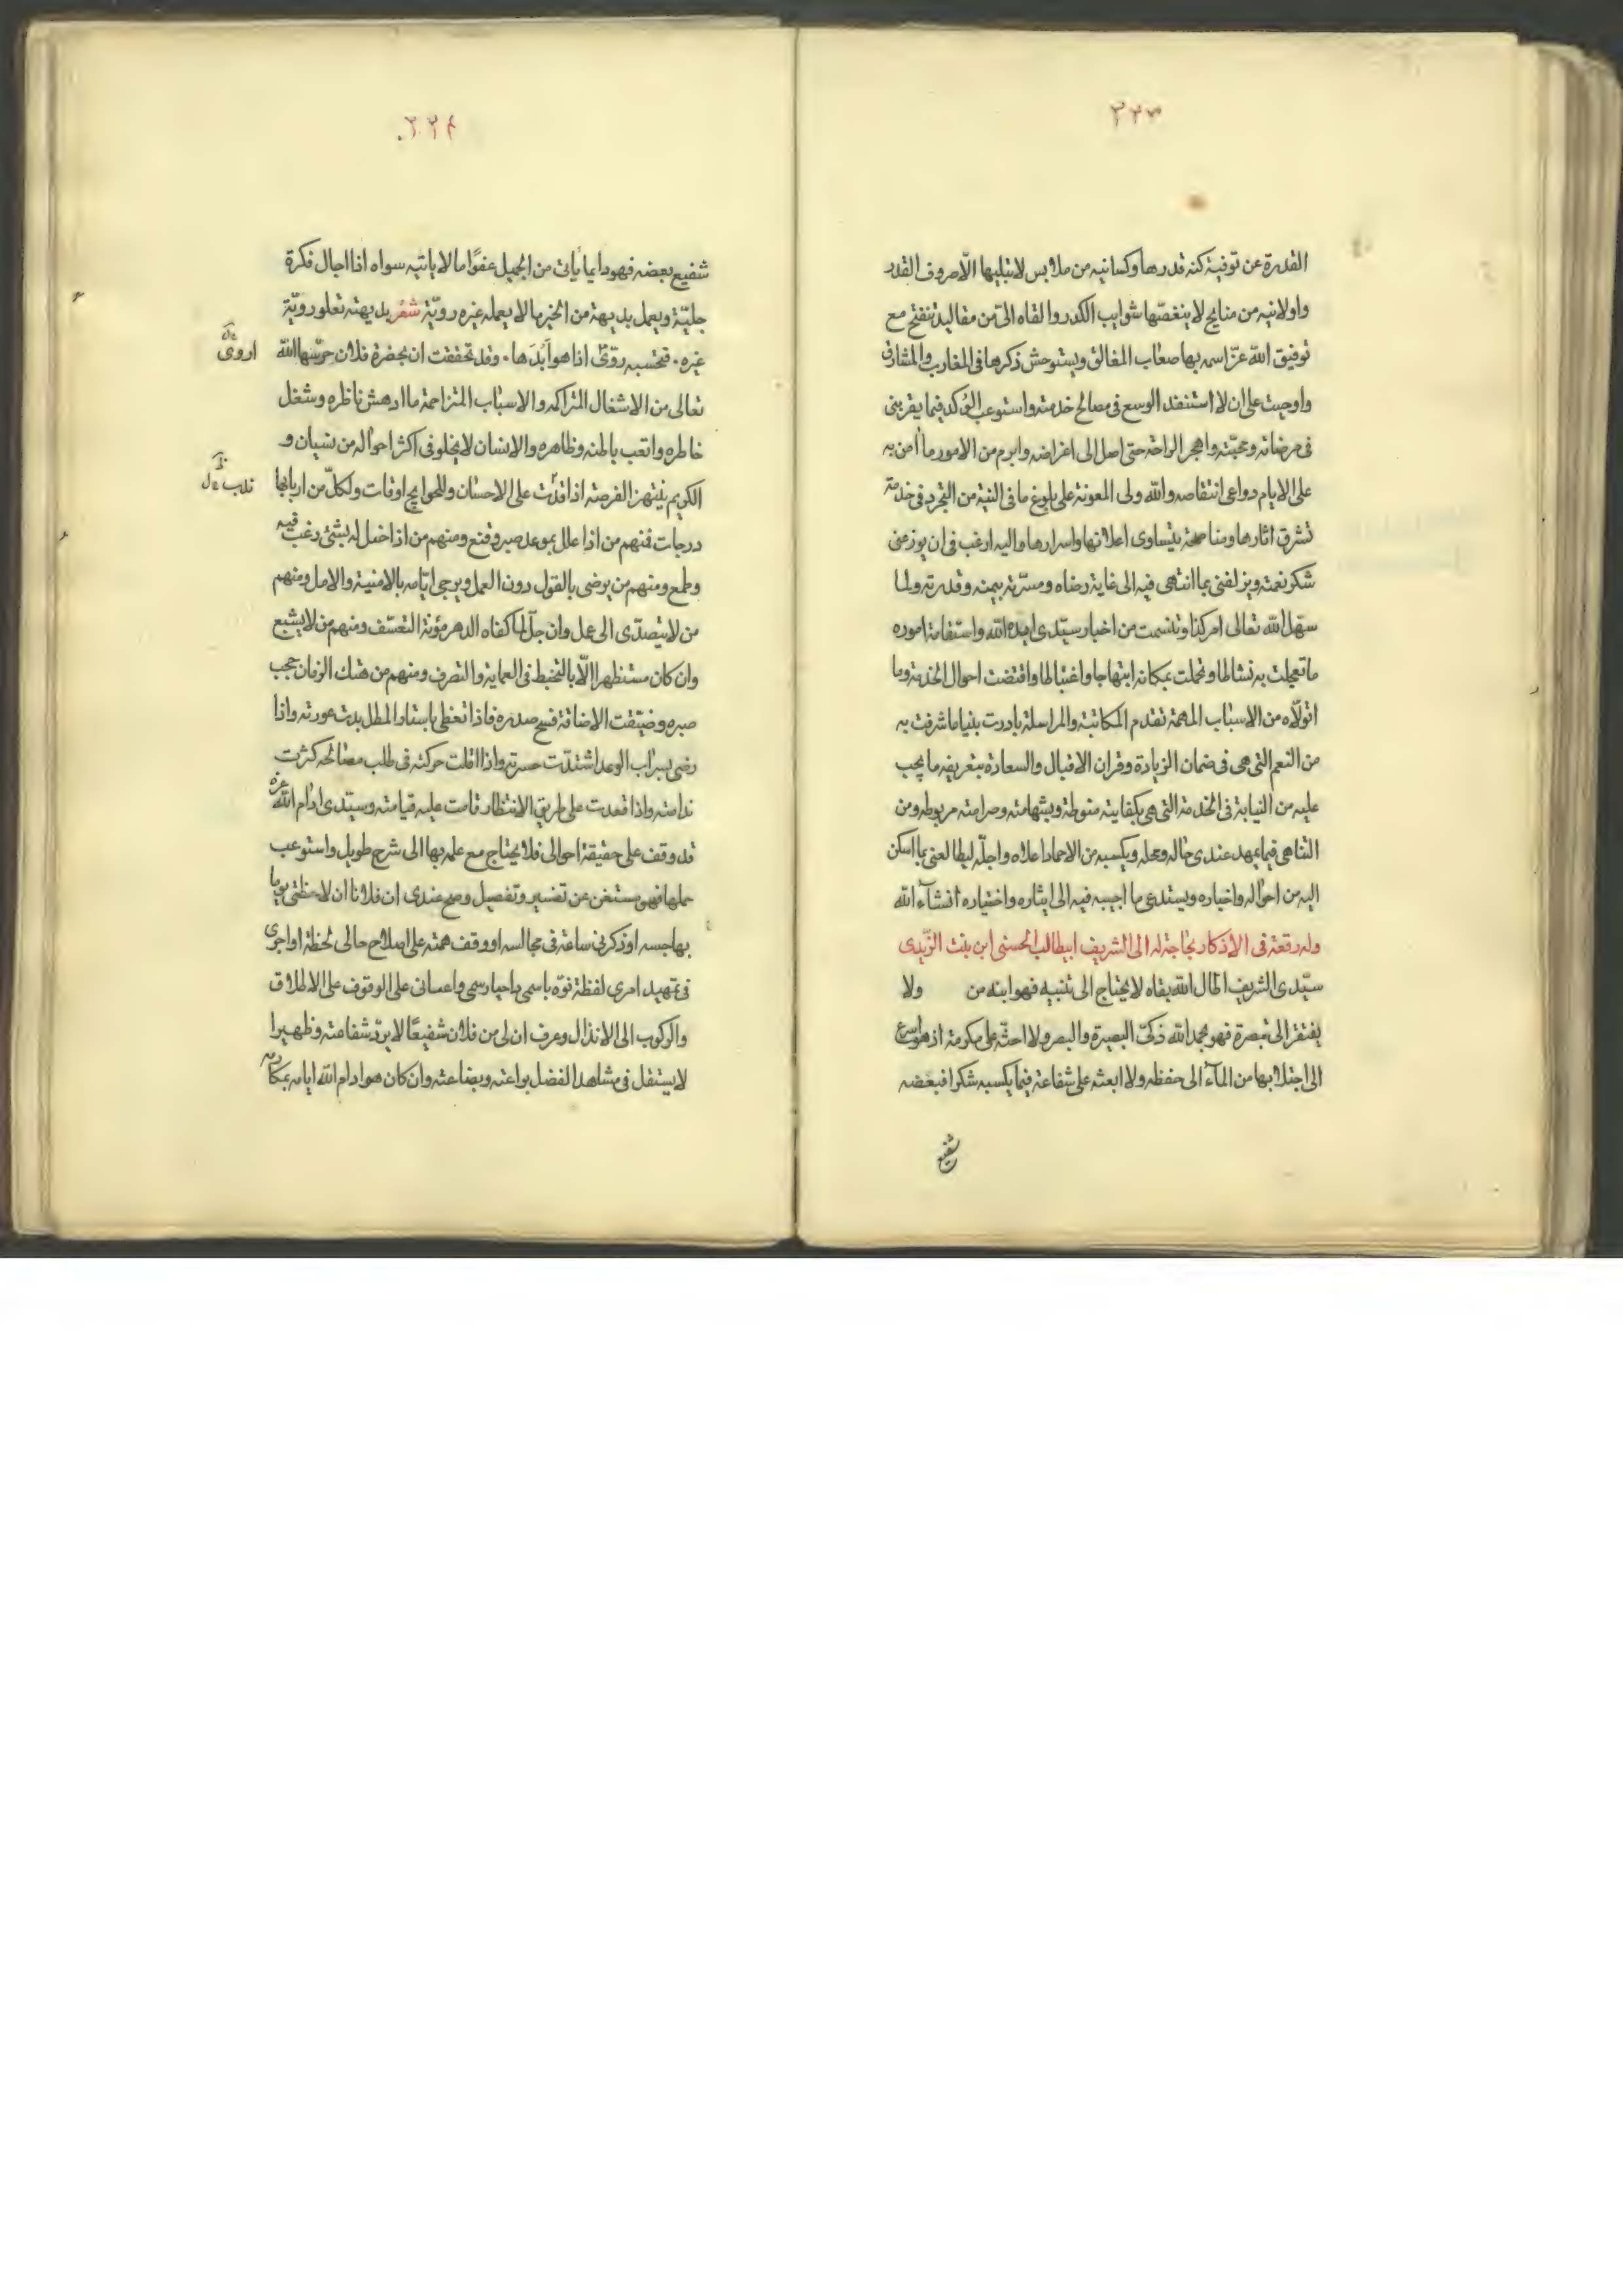 ٢٢٣
القدرة عن توفية كنه قدرها وكسانيه من ملابس لا يبليها الا صروف القدر
واولانيه من منايح لا ينغصها شوايب الكدر والقاه الىّ من مقاليد تنفتح مع
توفيق الله عزّ اسمه بها صعاب المغالق ويستوحش ذكرها فى المغارب والمشارق
واوجبت على ان لا استنفد الوسع فى مصالح خدمته واستوعب الوُكد فيما يقربنى
فى مرضاته ومحبّته واهجر الراحة حتى اصل الى اغراضه وابرم من الامور ما آمن به
على الايام دواعى انتقاصه والله ولى المعونة على بلوغ ما فى النية من التجرد فى خدمة
تشرق اثارها ومناصحة يتساوى اعلانها واسرارها واليه ارغب فى ان يوزعنى
شكر نعمته ويزلفنى بما انتهى فيه الى غاية رضاه ومسرّته بيمنه وقدرته ولما
سهّل الله تعالى امر كذا وتنسمت من اخبار سيّدى ايده الله واستقامة اموره
ما تعجلت به نشاطا وتحملت بمكانه ابتهاجا واغتباطا واقتضت احوال الخدمة وما
اتولّاه من الاسباب المهمة تقدم المكاتبة والمراسلة بادرت بنيا ما شرفت به
من النعم التى هى فى ضمان الزيادة وقران الاقبال والسعادة بتعريفه ما يجب
عليه من النيابة فى الخدمة التى هى بكفايته منوطة وبشهامته وصرامته مربوطه ومن
التناهى فيما يمهد عندى حاله ومحله ويكسبه من الاحماد اعلاه واجلّه ليطالعنى بما اسكن
اليه من احواله واخباره ويستدعى ما اجيبه فيه الى ايثاره واختياره انشآء الله
وله رقعة فى الاذكار بحاجة له الى الشريف ابيطالب الحسنى ابن بنت الزيدى
سيّدى الشريف اطال الله بقاه لا يحتاج الى تنبيه فهو ابنه من ولا
يفتقر الى تبصرة فهو بحمد الله ذكىّ البصيرة والبصر ولا احثّه على مكرمة اذ هو اسرع
الى اجتلابها من المآء الى حفظه ولا ابعثه على شفاعة فيما يكسبه شكرا فبعضه
شفيع
٢٢٤
شفيع بعضه فهو دايما يأتى من الجميل عفوًا ما لا ياتيه سواه اذا اجال فكرة
جليّة ويعمل بديهة من الخير ما لا يعمله غيره رويّة شعر بديهته تعلو رويّة
غيره . فتحسبه روّى اذا هو ابدَها . وقد تحققت ان بحضرة فلان حرّسها الله
اروى
تعالى من الاشغال المتراكمه والاسباب المتزاحمة ما ادهش ناظره وشغل
خاطره واتعب باطنه وظاهره والانسان لا يخلو فى اكثر احواله من نسيان و
الكريم ينتهز الفرصة اذا قدرت على الاحسان وللحوايج اوقات ولكلّ من اربابها
درجات فمنهم من اذا علل بموعد صبر وقنع ومنهم من اذا خيل له بشئ رغب فيه
وطمع ومنهم من يرضى بالقول دون العمل ويرجى ايّامه بالامنية والامل ومنهم
من لا يتصدّى الى عمل وان جلّ لما كفاه الدهر مؤنة التعسّف ومنهم من لا يشبع
وان كان مستظهرا الّا بالتخبط فى العماية والتصرف ومنهم من هتك الزمان حجب
صبره وضيّقت الاضاقة فسح صدره فاذا تغطى باستار المطل بدت عورته واذا
رضى بسراب الوعد اشتدّت حسرته واذا اقلت حركته فى طلب مصالحه كثرت
ندامته واذا قعدت على طريق الانتظار قامت عليه قيامته وسيّدى ادام الله عزه
قد وقف على حقيقة احوالى فلا يحتاج مع علمه بها الى شرح طويل واستوعب
جملها فهو مستغن عن تفسير وتفصيل وصح عندى ان فلانا ان لاحظنى يوما
بهاجسه او ذكرنى ساعة فى مجالسه او وقف همته على اصلاح حالى لحظة او اجرى
فى تمهيد امرى لفظة نوّه باسمى واعاننى على الوقوف على الاطلاق
والركوب الى الانذال وعرف ان لى من فلان شفيعًا لا يردّ شفاعته وظهيرا
لا يستقل فى مشاهد الفضل بواعته وبضاعته وان كان هو ادام الله ايامه بمكارمه